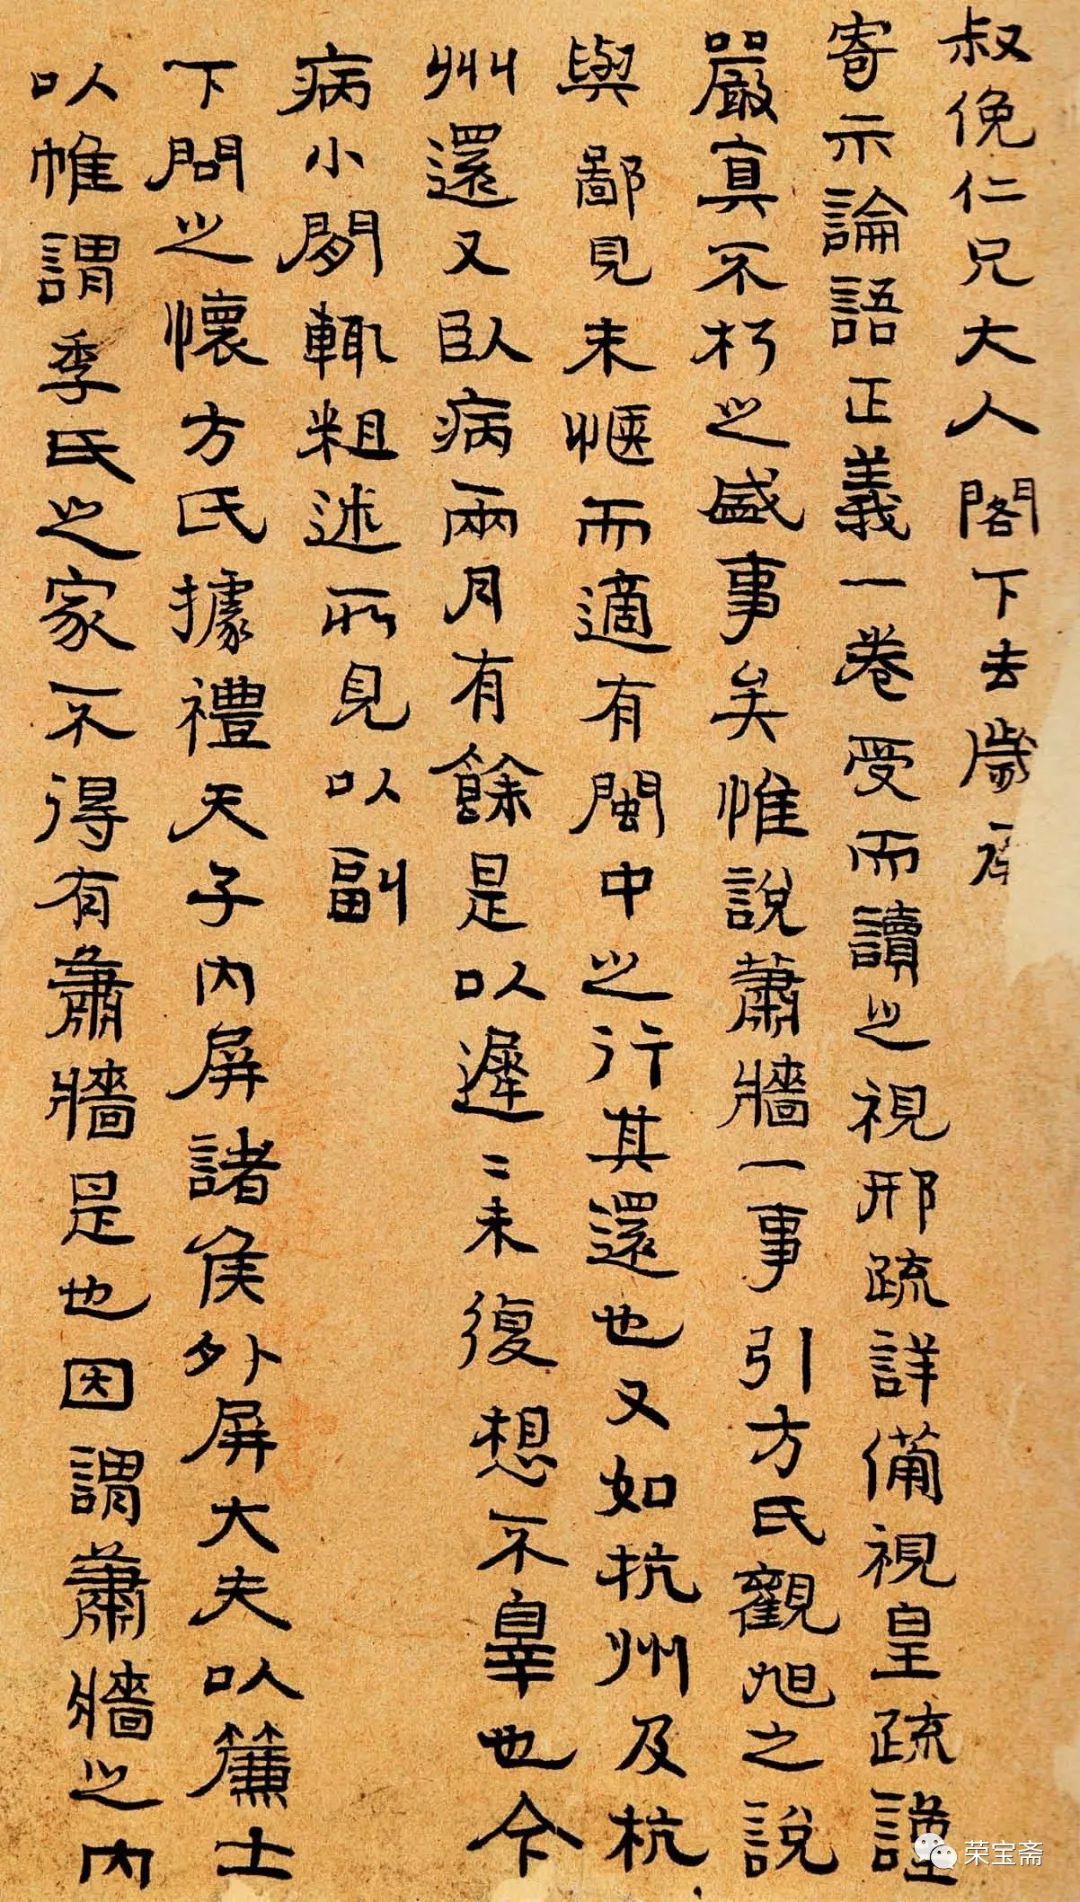 叔俛仁兄大人閣下去歲承
寄示論語正義一卷受而讀之視邢疏詳備視皇疏謹
嚴真不朽之盛事矣惟說蕭牆一事引方氏觀旭之說
與鄙見未愜而適有閩中之行其還也又如杭州及杭
州還又臥病兩月有餘是以遲〻未復想不辠也今
病小閒輒粗述所見以副
下問之懷方氏據禮天子內屏諸侯外屏大夫以簾士
以帷謂季氏之家不得有蕭牆是也因謂蕭牆之內
荣宝斋